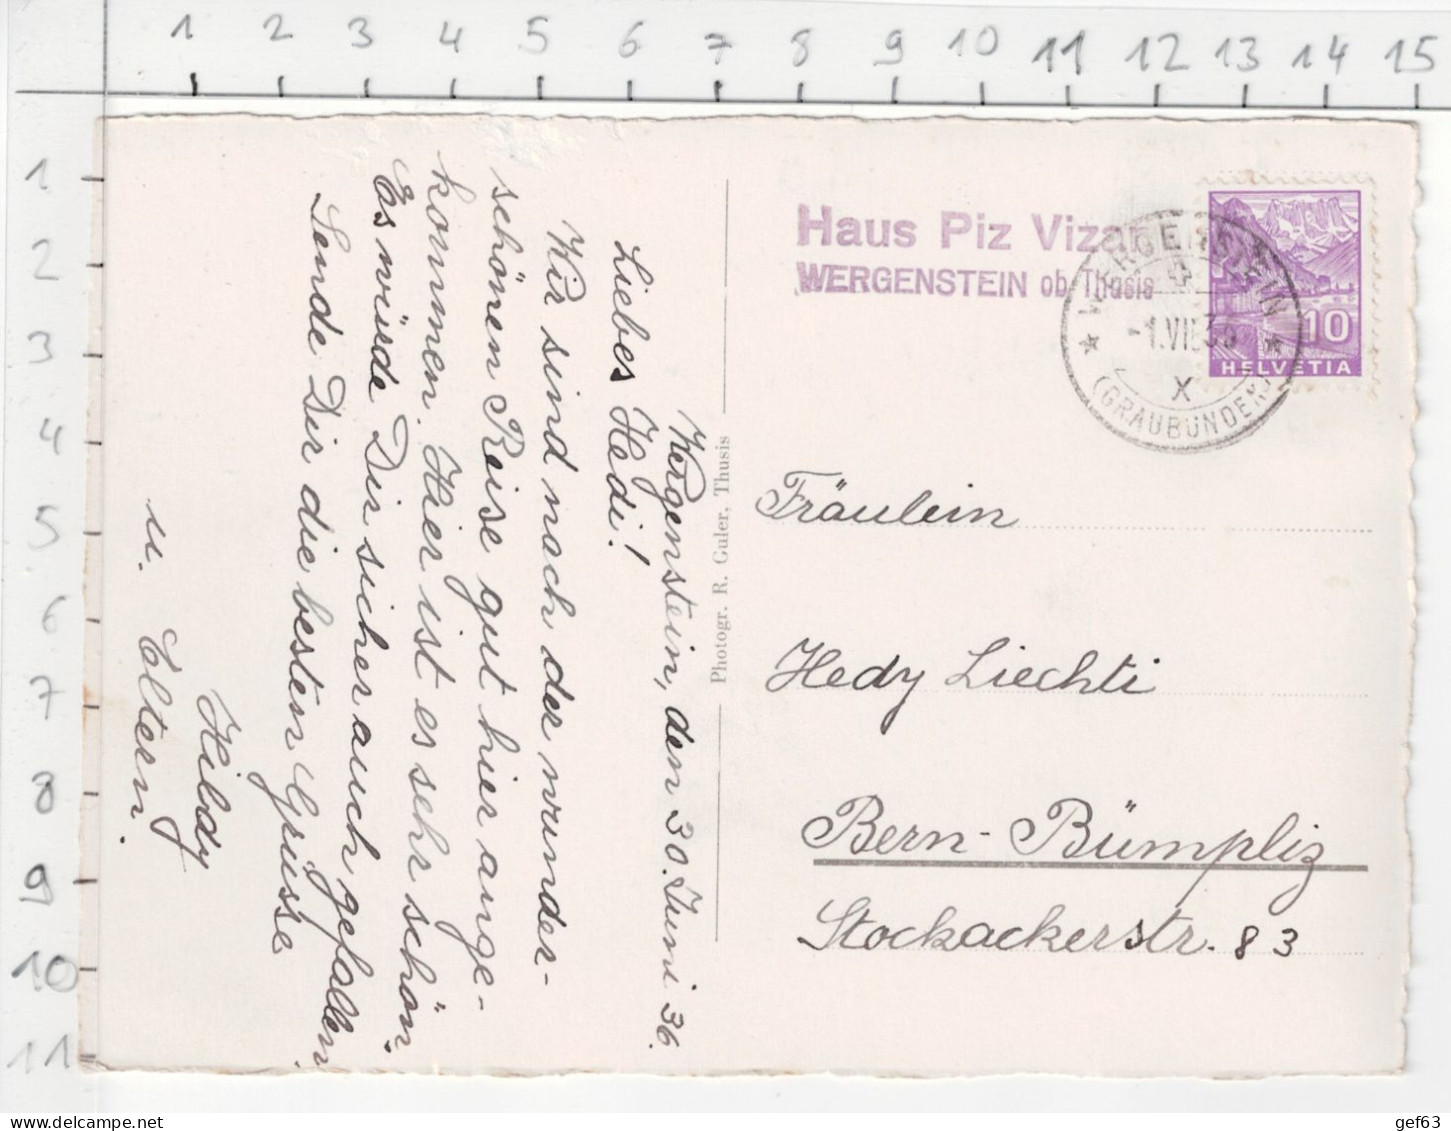 1 2 3 4 5 6 7 8 9 10 11 12 13 14 15
1
2
3
4
5
6
7
8
9
10
11
Wergenstein, den 30. Juni 36.
Liebes Hedi!
Wir sind nach der wunder-
schönen Reise gut hier ange-
kommen. Hier ist es sehr schön.
Es würde Dir sicher auch gefallen.
Sende Dir die besten Grüsse
Hildy
u. Eltern.
Photogr. R. Guler, Thusis
Haus Piz Vizan
WERGENSTEIN ob Thusis
WERGENSTEIN
-1.VII.36
X
(GRAUBÜNDEN)
10
HELVETIA
Fräulein
Hedy Liechti
Bern-Bümpliz
Stockackerstr. 83
www.delcampe.net
gef63